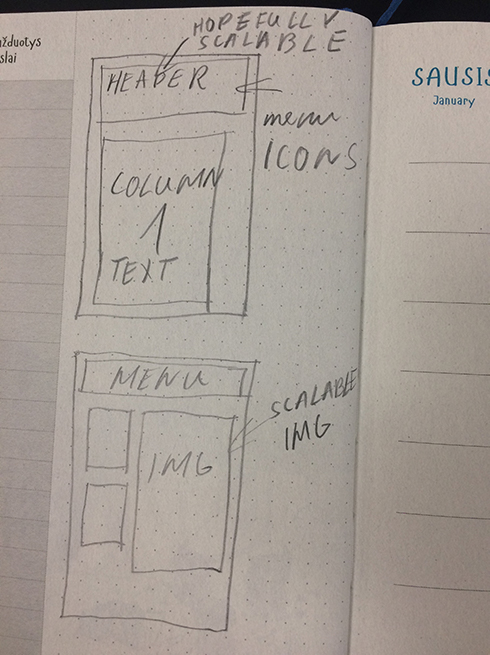 užduotys
slai
HOPEFULLY
SCALABLE
HEADER
menu
ICONS
COLUMN
1
TEXT
MENU
SCALABLE
IMG
IMG
SAUSIS
January